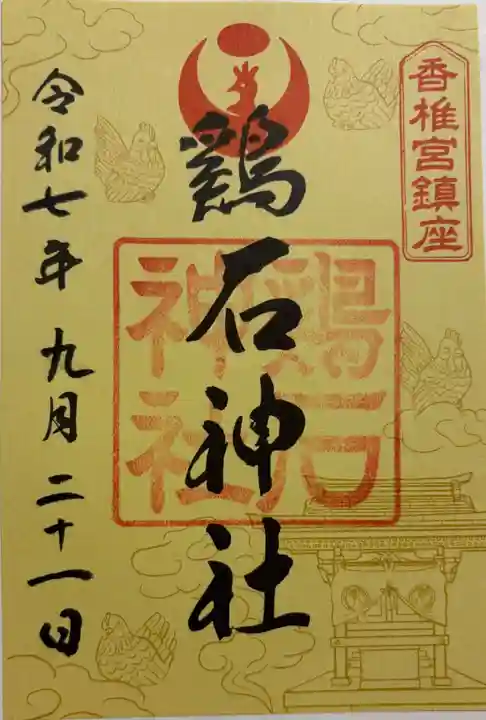 香椎宮鎮座
鶏石神社
鶏石神社
令和七年 九月二十一日